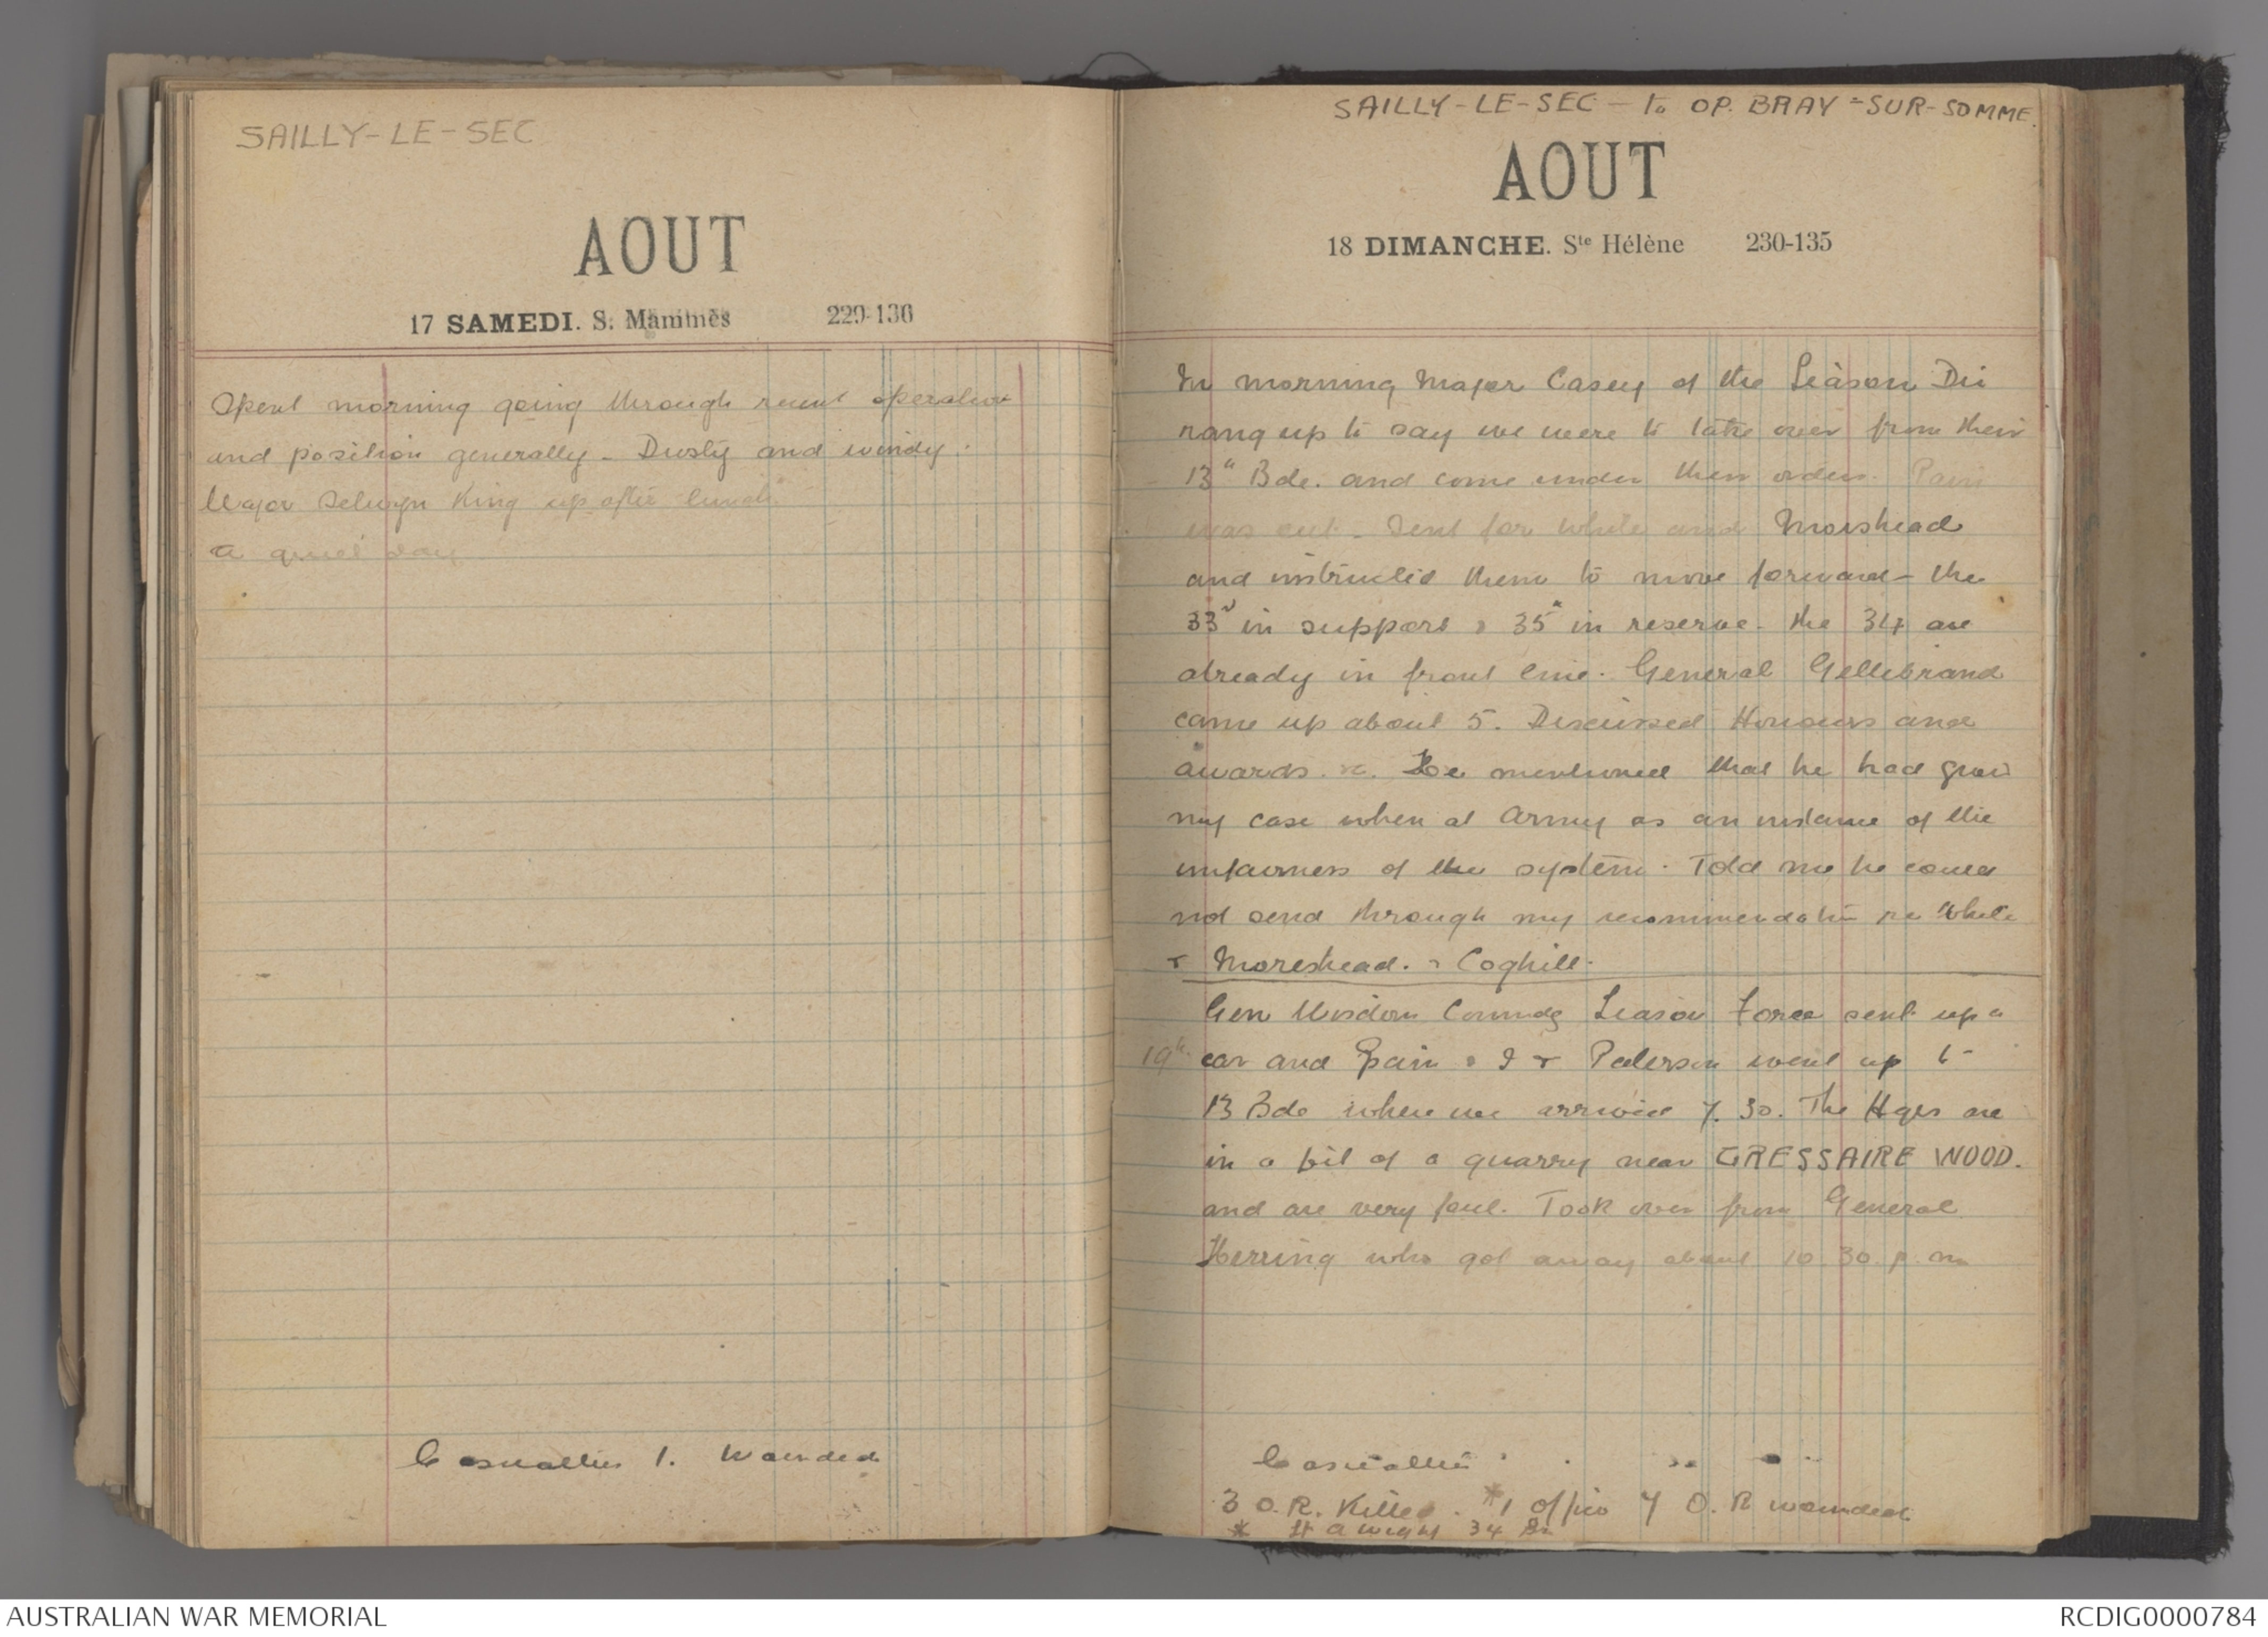 SAILLY-LE-SEC
AOUT
17 SAMEDI. S. Mammès 229-136
Spent morning going through recent operation
and position generally - Dusty and windy.
Major Selwyn King up after lunch.
a quiet day
Casualties 1. Wounded
SAILLY-LE-SEC - to OP. BRAY-SUR-SOMME.
AOUT
18 DIMANCHE. Ste Hélène 230-135
In morning Major Casey of the Leason Div
rang up to say we were to take over from their
13th Bde. and come under their orders. Pain
was out - Sent for White and Morshead
and instructed them to move forward - the
33rd in support & 35th in reserve - the 34 are
already in front line. General Gellebrand
came up about 5. Discussed Honours and
awards. &c. He mentioned that he had given
my case when at Army as an instance of the
unfairness of the system. Told me he could
not send through my recommendation re White
& Moreshead. & Coghill.
Gen Wisdom Commdg Leason Force sent up a
19th. car and Pain & I & Paterson went up to
13 Bde where we arrived 7.30. The Hqrs are
in a bit of a quarry near GRESSAIRE WOOD.
and are very foul. Took over from General
Herring who got away about 10.30 p.m
Casualties
3 O.R. Killed. *1 Offic 7 O.R wounded.
* Lt A Wight 34 Bn
AUSTRALIAN WAR MEMORIAL
RCDIG0000784